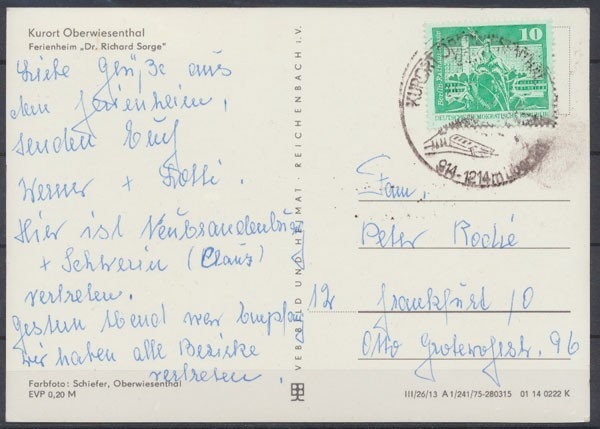 Kurort Oberwiesenthal
Ferienheim „Dr. Richard Sorge"
Liebe Grüße aus
dem Ferienheim,
senden Euch
Werner +
Hier ist Neubrandenburg
+ Schwerin (Claus)
vertreten.
Gestern Abend war Empfang
wir haben alle Bezirke
vertreten.
Farbfoto: Schiefer, Oberwiesenthal
EVP 0,20 M
VEB BILD UND HEIMAT REICHENBACH i. V.
10
KURORT
914-1214m
Fam.
Peter Roché
12 Frankfurt / O
Otto Grotewohlstr. 96
III/26/13 A 1/241/75-280315 01 14 0222 K